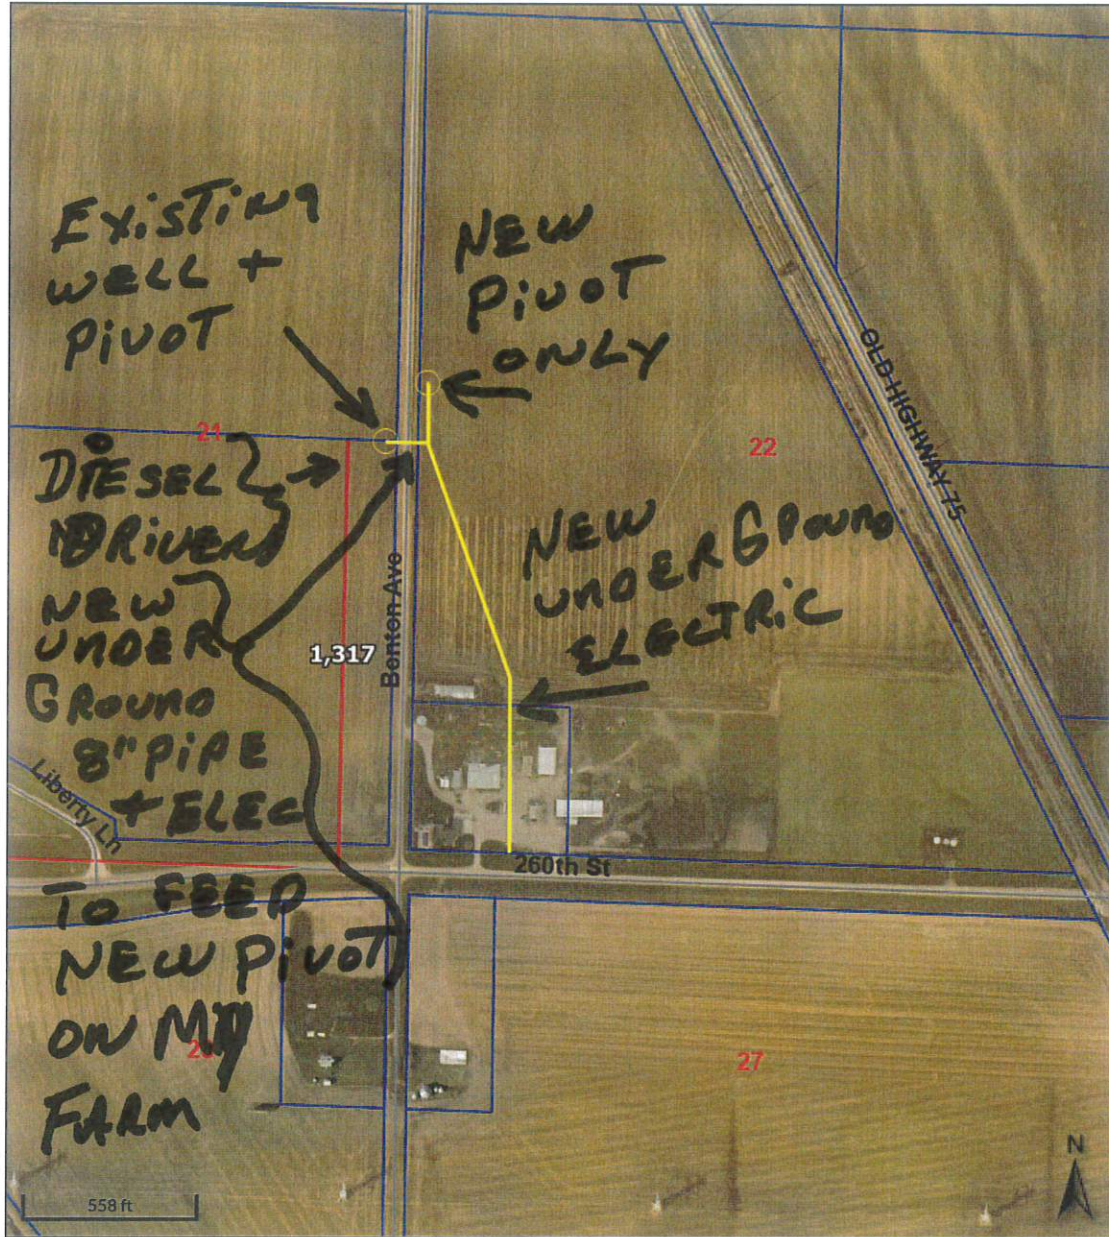 EXiSTiNg
WELL +
PiVOT
NEW
PiVOT
ONLY
OLD HIGHWAY 75
21
22
DIESEL
DRiVEN
NEW
UNDER
GROUND
8" PiPE
+ ELEC
1,317
Benton Ave
NEW
UNDERGROUND
ELECTRiC
Liberty Ln
260th St
TO FEED
NEW PiVOT
ON MY
FARM
27
N
558 ft